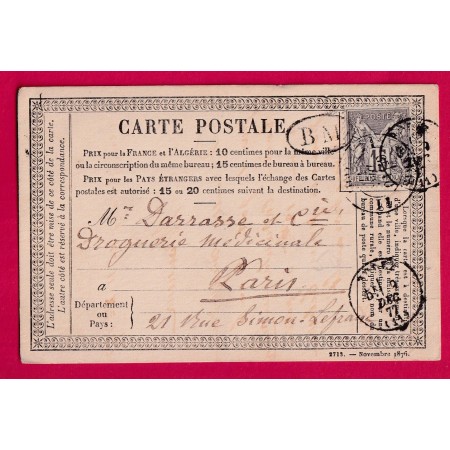 CARTE POSTALE
BM
POSTE
PRIX pour la FRANCE et l'ALGÉRIE : 10 centimes pour la même ville
ou la circonscription du même bureau; 15 centimes de bureau à bureau.
PRIX pour les PAYS ÉTRANGERS avec lesquels l'échange des Cartes
postales est autorisé : 15 ou 20 centimes suivant la destination.
Mr Darrasse et Cie
Droguerie médicinale
à Paris
Département
ou
Pays :
21 Rue Simon-Lefranc
L'adresse seule doit être mise de ce côté de la carte.
L'autre côté est réservé à la correspondance.
DEC
77
2713. — Novembre 1876.